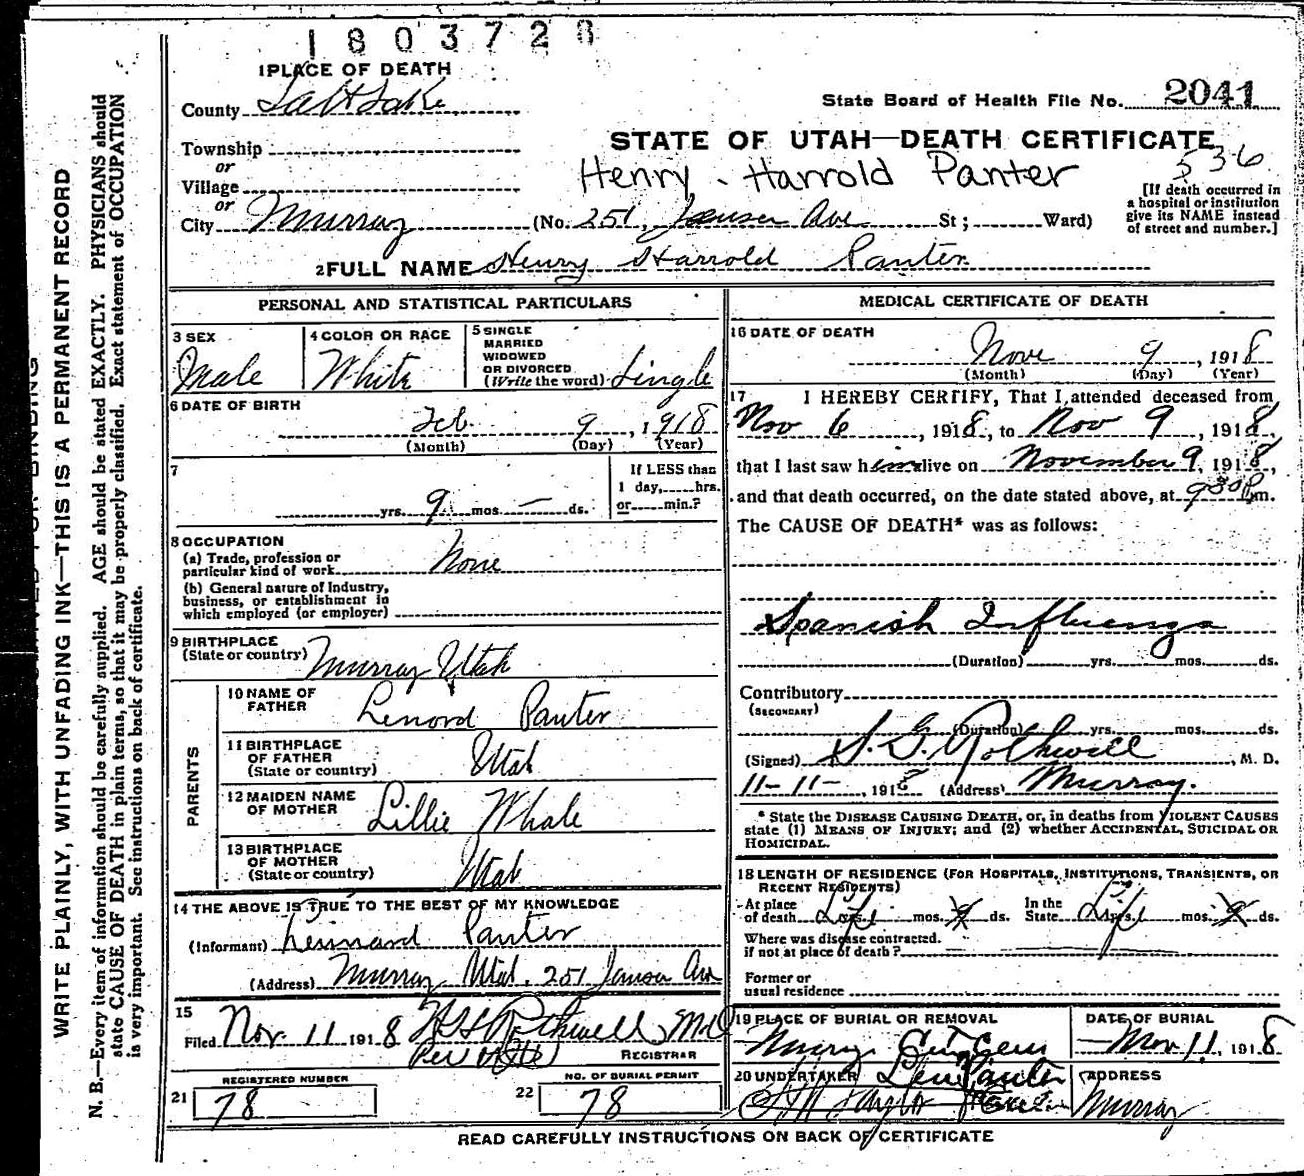 1803728
1 PLACE OF DEATH
County Salt Lake
State Board of Health File No. 2041
STATE OF UTAH—DEATH CERTIFICATE
Township
or
Village
or
Henry Harrold Panter 536
City Murray (No. 251, Jensen Ave St; Ward)
[If death occurred in
a hospital or institution
give its NAME instead
of street and number.]
2 FULL NAME Henry Harrold Panter
PERSONAL AND STATISTICAL PARTICULARS
3 SEX
Male
4 COLOR OR RACE
White
5 SINGLE
MARRIED
WIDOWED
OR DIVORCED
(Write the word) Single
6 DATE OF BIRTH
Feb. 9, 1918
(Month) (Day) (Year)
7
If LESS than
1 day,.....hrs.
or.....min.?
yrs. 9 mos. — ds.
8 OCCUPATION
(a) Trade, profession or
particular kind of work None
(b) General nature of Industry,
business, or establishment in
which employed (or employer)
9 BIRTHPLACE
(State or country) Murray Utah
PARENTS
10 NAME OF
FATHER Lenord Panter
11 BIRTHPLACE
OF FATHER
(State or country) Utah
12 MAIDEN NAME
OF MOTHER Lillie Whale
13 BIRTHPLACE
OF MOTHER
(State or country) Utah
14 THE ABOVE IS TRUE TO THE BEST OF MY KNOWLEDGE
(Informant) Leinard Panter
(Address) Murray Utah. 251 Jensen Ave
15
Filed Nov. 11 1918 Rothwell, Md
Per
REGISTRAR
REGISTERED NUMBER
21 78
NO. OF BURIAL PERMIT
22 78
MEDICAL CERTIFICATE OF DEATH
16 DATE OF DEATH
Nove 9, 1918
(Month) (Day) (Year)
17 I HEREBY CERTIFY, That I attended deceased from
Nov 6, 1918, to Nov 9, 1918,
that I last saw him alive on November 9, 1918,
and that death occurred, on the date stated above, at 9 30 P.m.
The CAUSE OF DEATH* was as follows:
Spanish Influenza
(Duration) yrs. mos. ds.
Contributory
(SECONDARY)
(Duration) yrs. mos. ds.
(Signed) Rothwell, M. D.
11-11-, 1918 (Address) Murray.
* State the DISEASE CAUSING DEATH, or, in deaths from VIOLENT CAUSES
state (1) MEANS OF INJURY; and (2) whether ACCIDENTAL, SUICIDAL OR
HOMICIDAL.
18 LENGTH OF RESIDENCE (FOR HOSPITALS, INSTITUTIONS, TRANSIENTS, OR
RECENT RESIDENTS)
At place
of death Life mos. 9 ds.
In the
State Life mos. 9 ds.
Where was disease contracted.
if not at place of death?
Former or
usual residence
19 PLACE OF BURIAL OR REMOVAL
Murray Cem
DATE OF BURIAL
Nov 11, 1918
20 UNDERTAKER Len Panter
Taylor
ADDRESS
Murray
READ CAREFULLY INSTRUCTIONS ON BACK OF CERTIFICATE
WRITE PLAINLY, WITH UNFADING INK—THIS IS A PERMANENT RECORD
N. B.—Every item of information should be carefully supplied. AGE should be stated EXACTLY. PHYSICIANS should
state CAUSE OF DEATH in plain terms, so that it may be properly classified. Exact statement of OCCUPATION
is very important. See instructions on back of certificate.